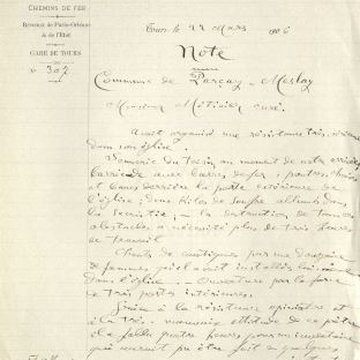 CHEMINS DE FER
Réseaux de Paris-Orléans
& de l'État
GARE DE TOURS
N° 307
Tours le 22 Mars 1906
Note
Commune de Parçay-Meslay
Monsieur Métivier curé.
Avait organisé une résistance très sérieuse
dans son église.
Sonnerie du tocsin au moment de notre arrivée
barricade avec barres de fer, poutres, chaises
et bancs derrière la porte extérieure de
l'église; deux kilos de soufre allumés dans
la sacristie; - la destruction de tous ces
obstacles a nécessité plus de trois heures
de travail
Chants de cantiques par une douzaine
de femmes qu'il avait installées lui-même
dans l'église. - Ouverture par la force
de trois portes intérieures.
Grâce à la résistance opiniâtre et
à la très attitude de ce prêtre
il a fallu quatre heures pour un inventaire
qui pouvait fort bien être fait en quelques